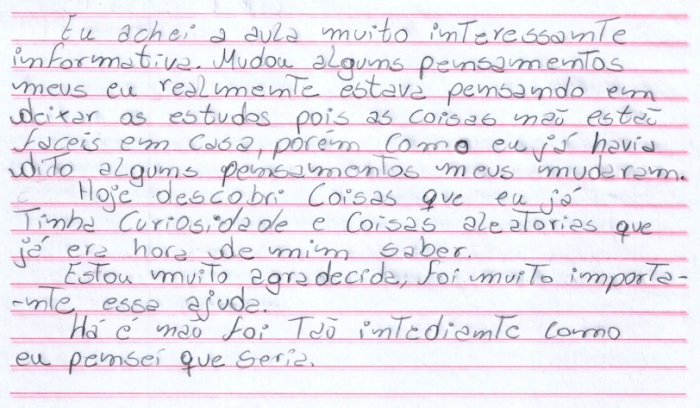 Eu achei a aula muito interessante
informativa. Mudou alguns pensamentos
meus eu realmente estava pensando em
deixar as estudos pois as coisas não estão
faceis em casa, porém como eu já havia
dito alguns pensamentos meus mudaram.
Hoje descobri Coisas que eu já
Tinha Curiosidade e Coisas aleatorias que
já era hora de mim saber.
Estou muito agradecida, foi muito importa-
-nte essa ajuda.
Há é não foi Tão intediante como
eu pensei que seria.